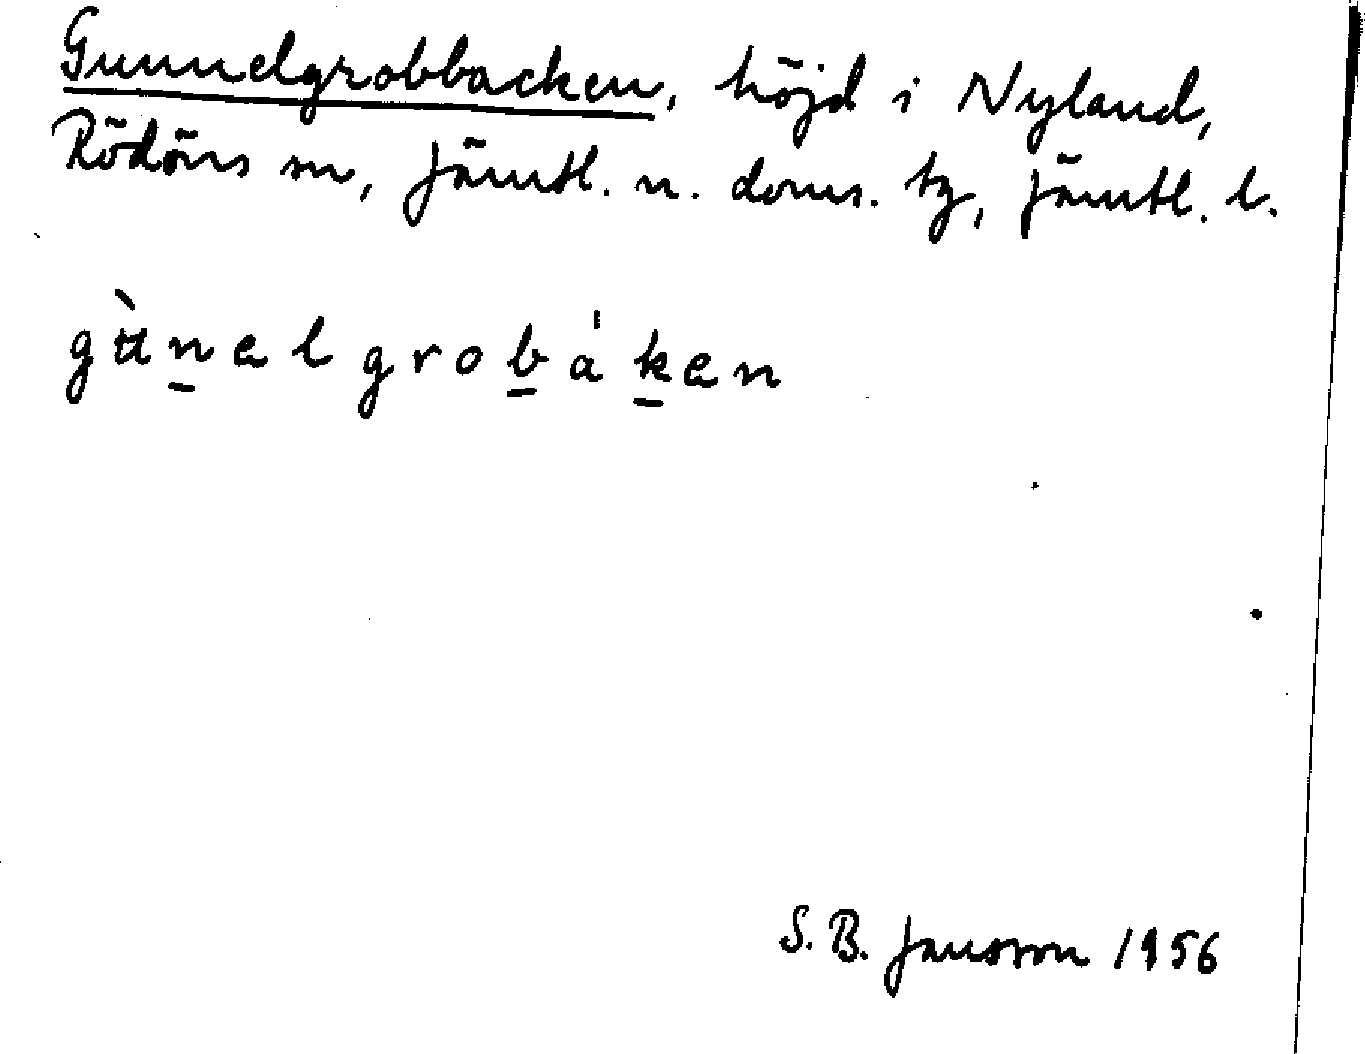 Gunnelgrobbacken, höjd i Nyland,
Rödöns sn, Jämtl. n. doms. tg, Jämtl. l.
gùn̲elgrob̲a̍k̲en
S. B. Jansson 1956